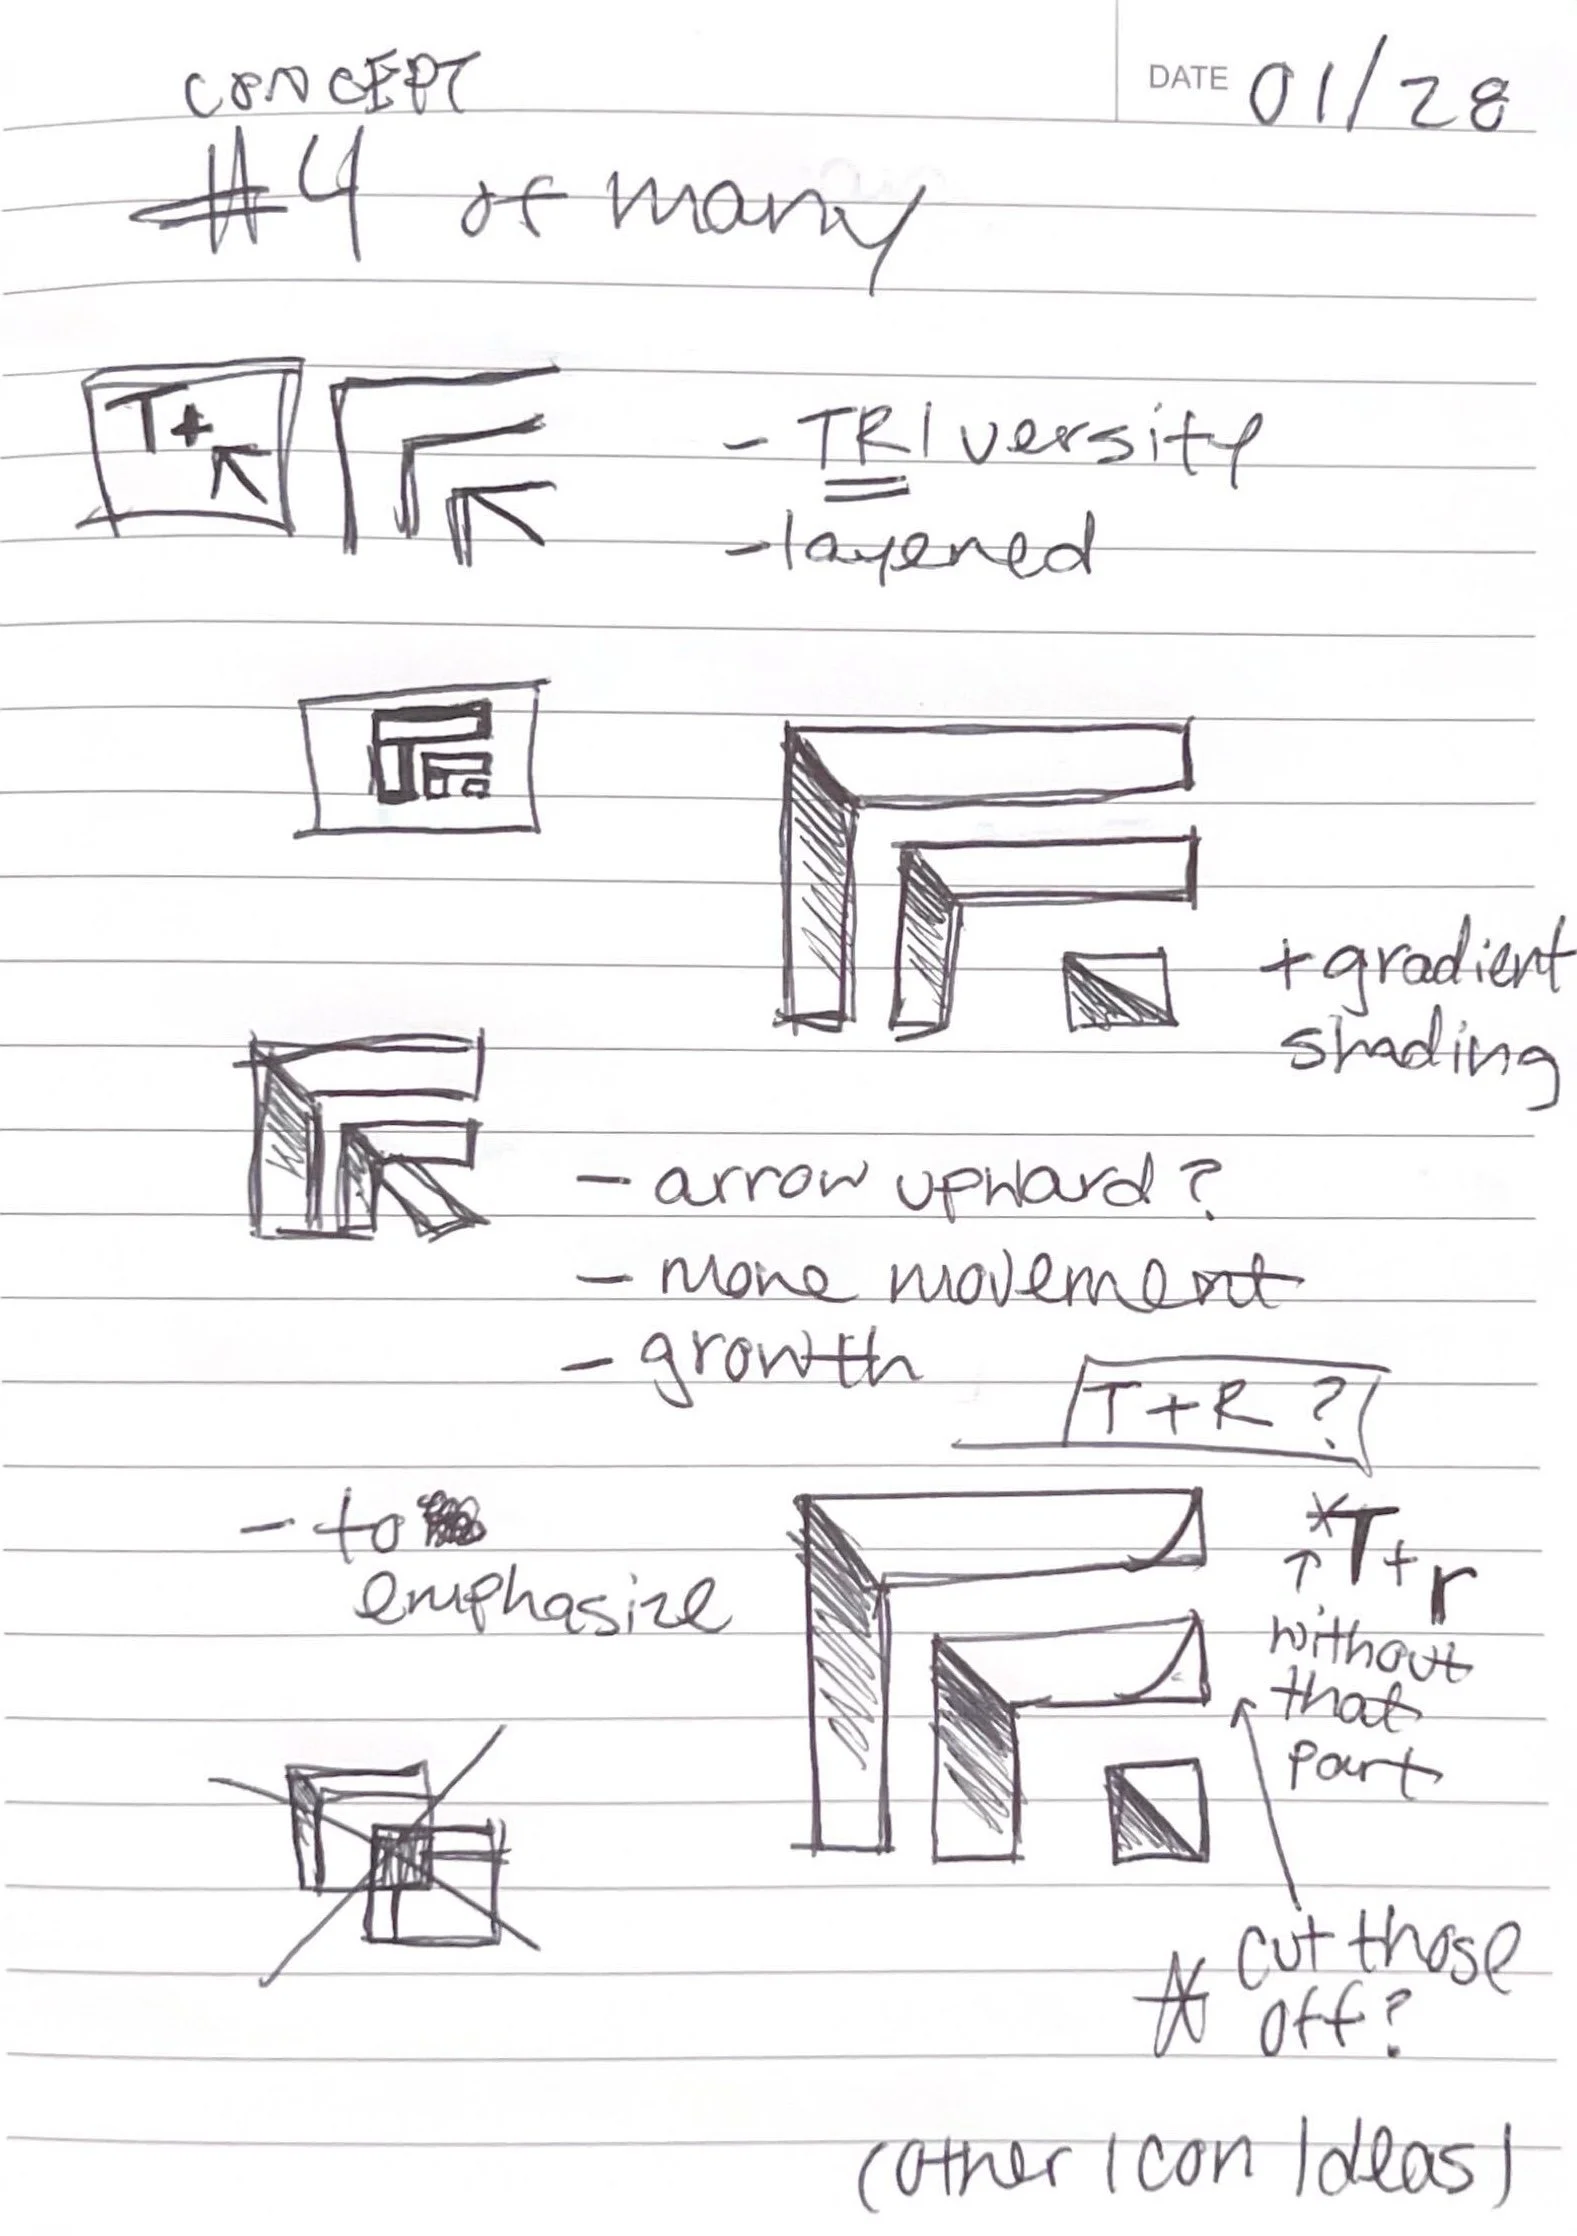 CONCEPT
DATE 01/28
#4 of many
T+
- TRIversity
- layered
+ gradient
shading
- arrow upward?
- more movement
- growth
T+R?
- to
emphasize
*T+r
without
that
part
* cut those
off?
(other icon ideas)